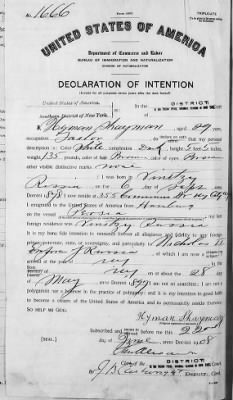 No. 1666
TRIPLICATE
UNITED STATES OF AMERICA
Department of Commerce and Labor
BUREAU OF IMMIGRATION AND NATURALIZATION
DIVISION OF NATURALIZATION
DECLARATION OF INTENTION
(Invalid for all purposes seven years after the date hereof)
United States of America,
DISTRICT
Southern District of New York.
I, Hyman aged 29 years,
occupation Tailor do declare on oath that my personal
description is: Color White, complexion Dark, height 5 feet inches,
weight 135 pounds, color of hair Brown, color of eyes Brown
other visible distinctive marks none
I was born in
Russia on the 6 day of Sept, anno
Domini 18 ; I now reside at 355 NY City
I emigrated to the United States of America from Hamburg
on the vessel Persia; my last
foreign residence was Russia
It is my bona fide intention to renounce forever all allegiance and fidelity to any foreign
prince, potentate, state, or sovereignty, and particularly to Nicholas II
Russia, of which I am now a
arrived at the port of NY
on or about the 28 day
of May, anno Domini 1899; I am not an anarchist; I am not a
polygamist nor a believer in the practice of polygamy; and it is my intention in good faith
to become a citizen of the United States of America and to permanently reside therein:
SO HELP ME GOD.
Hyman
Subscribed and sworn to before me this 22nd
[SEAL.]
day of June, anno Domini 1908
Clerk
DISTRICT